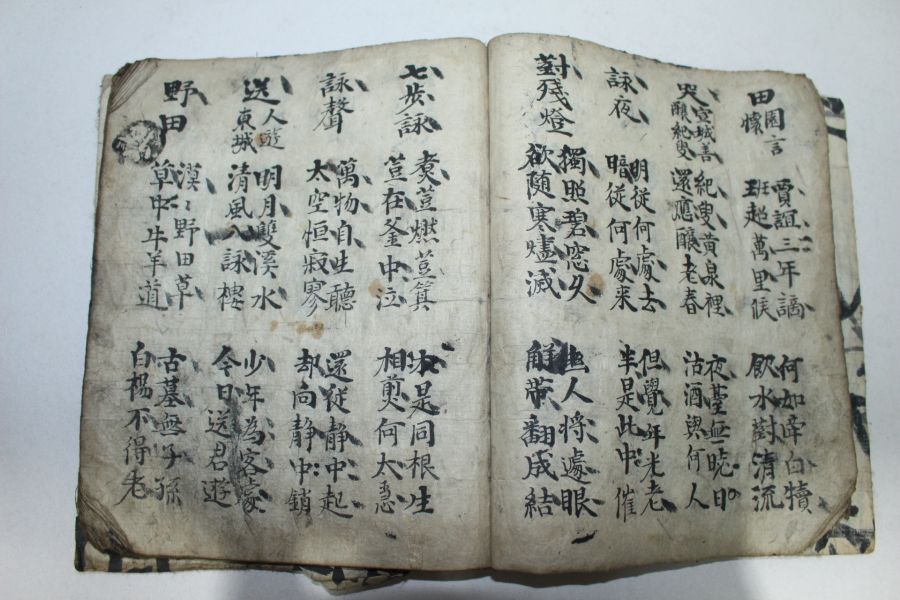 田園言懷
賈誼三年謫
班超萬里侯
何如牽白犢
飲水對清流
哭宣城善釀紀叟
紀叟黃泉裡
還應釀老春
夜臺無曉日
沽酒與何人
詠夜
明從何處去
暗從何處来
但覺年〻老
半是此中催
對殘燈
獨照碧窓久
欲随寒燼滅
幽人將遽眼
解帶翻成結
七步詠
煮荳燃荳箕
荳在釜中泣
本是同根生
相煎何太急
詠聲
萬物自生聽
太空恒寂寥
還從静中起
却向静中銷
送人遊東城
明月雙溪水
清風八詠樓
少年為客處
今日送君遊
野田
漠〻野田草
草中牛羊道
古墓無子孫
白楊不得老